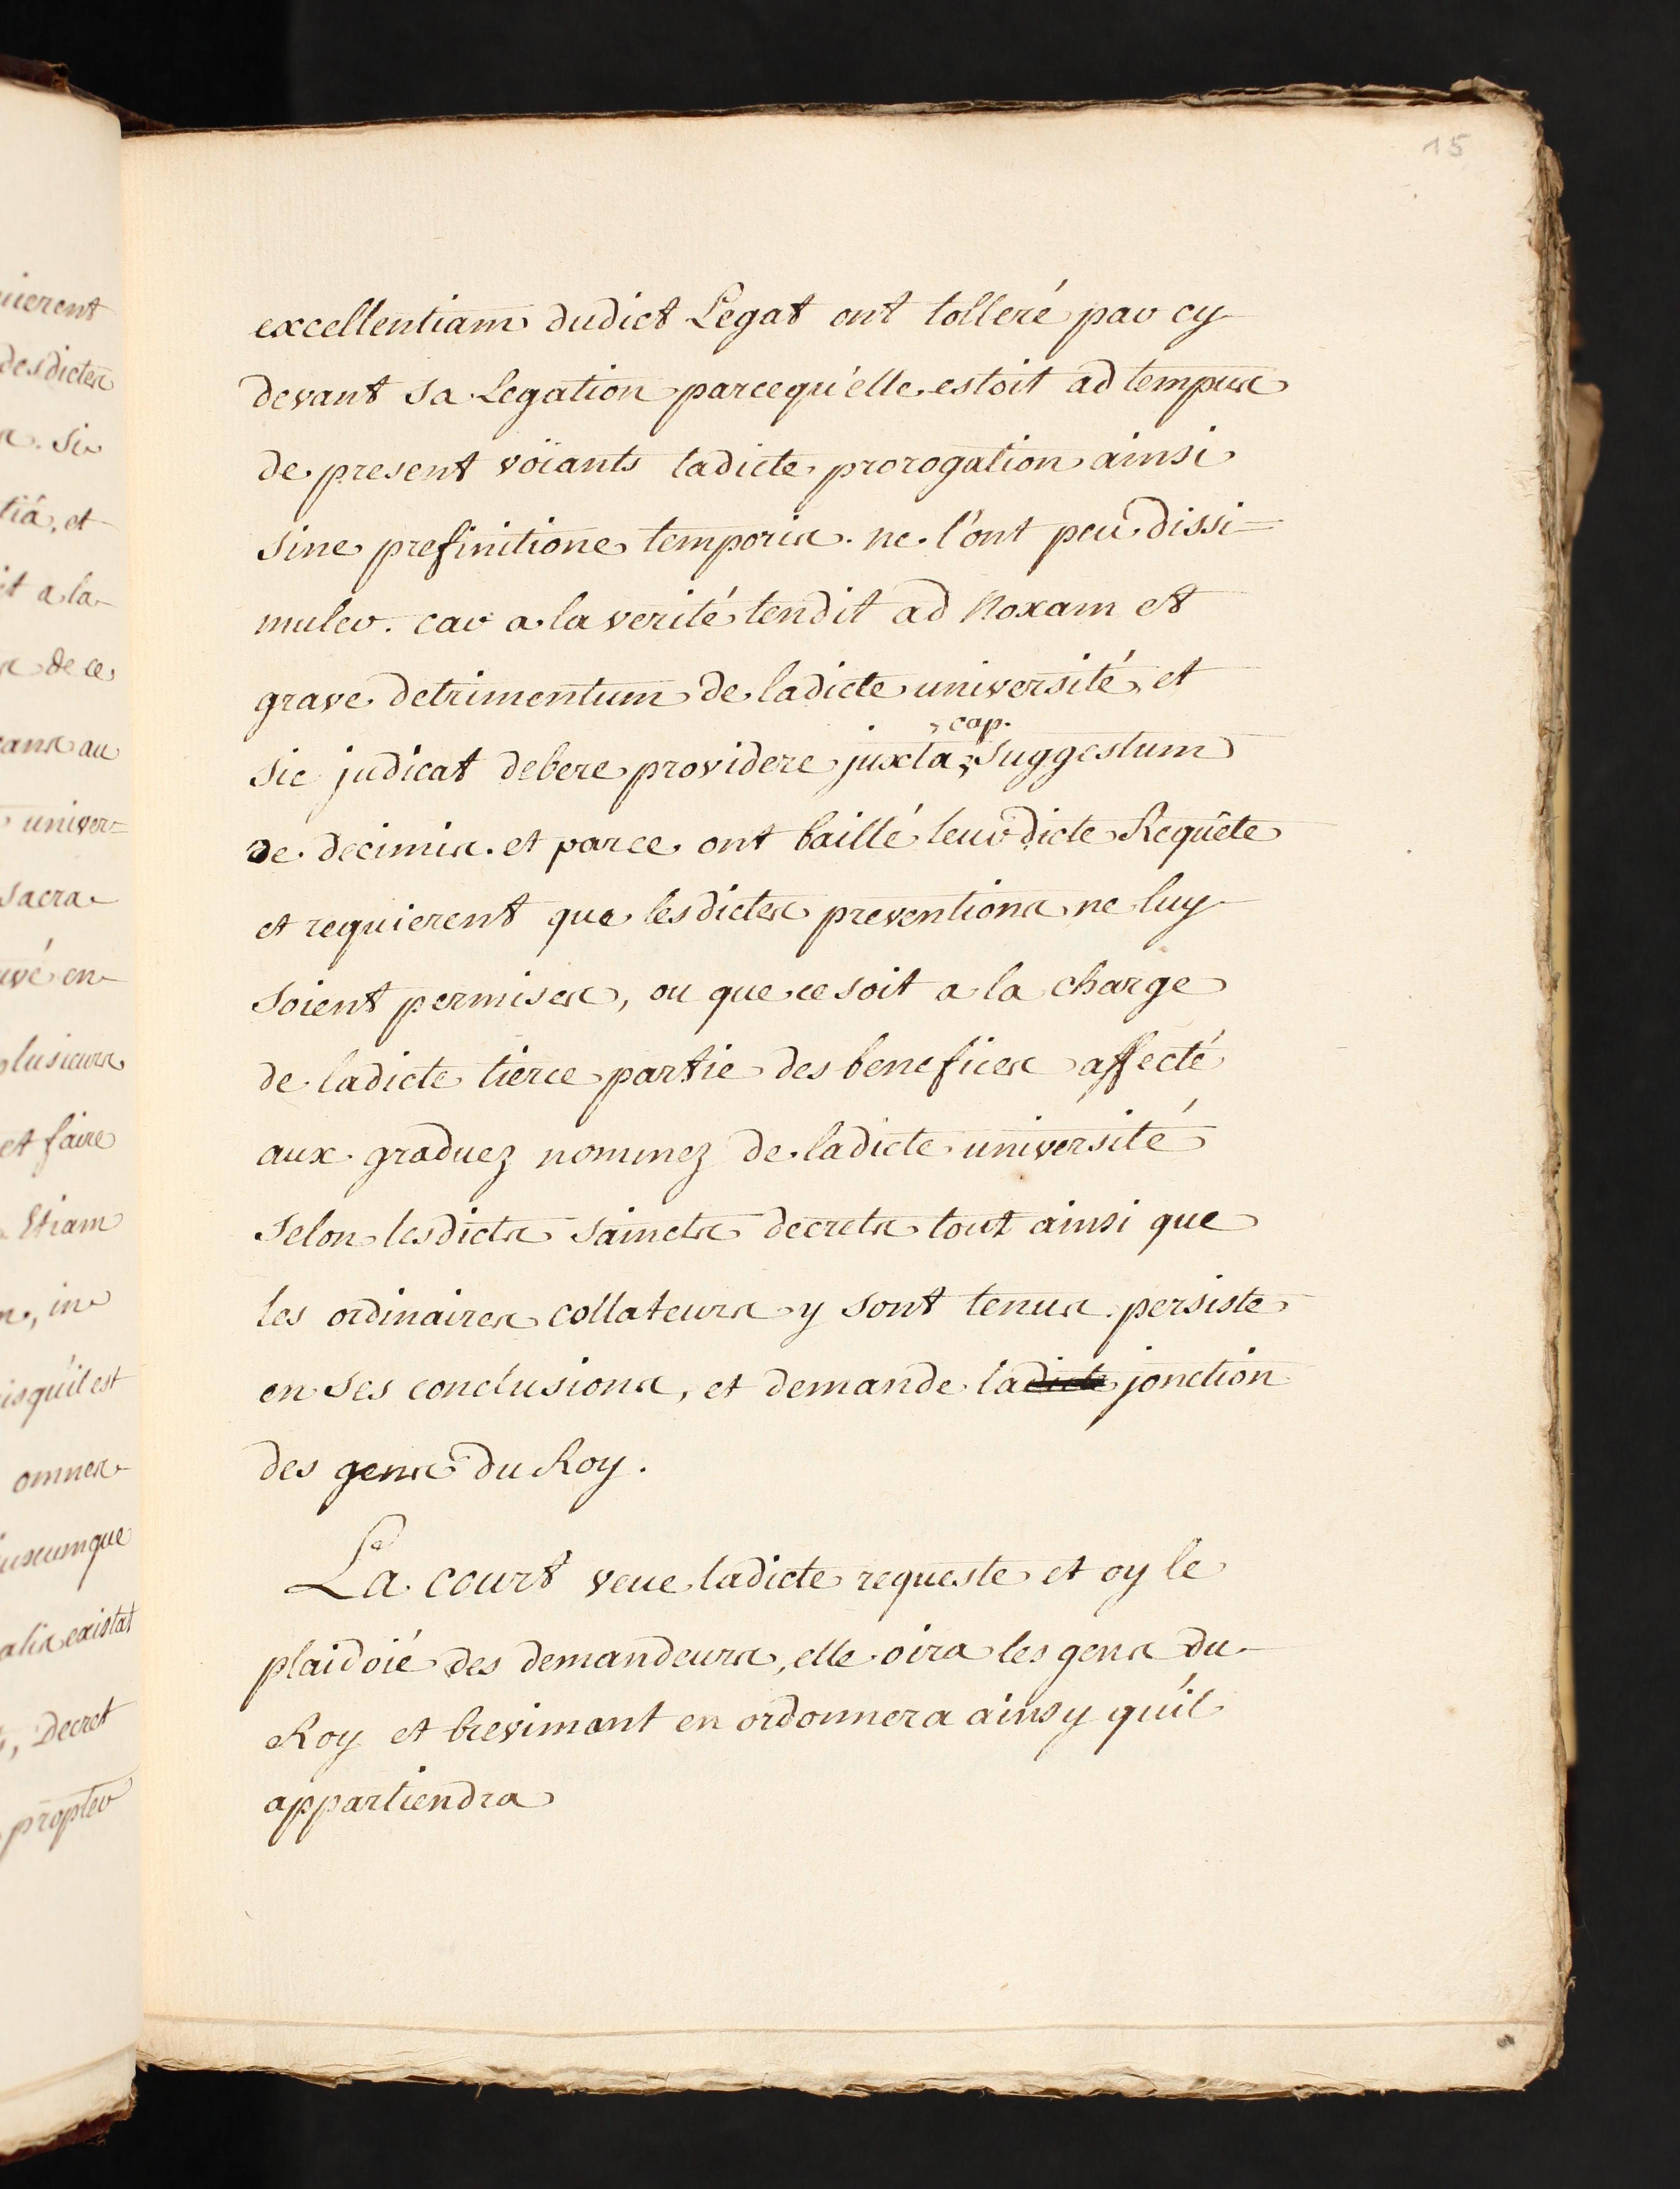 15
excellentiam dudict Legat ont tolleré par cy
devant sa Legation parcequ'elle estoit ad tempus
de present voïants ladicte prorogation ainsi
sine prefinitione temporis. ne l'ont peu dissi=
muler. car a la verité tendit ad noxam et
grave detrimentum de ladicte université, et
cap.
sic judicat debere providere juxta suggestum
de decimis. et parce ont baillé leurdicte Requête
et requierent que lesdictes preventions ne luy
soient permises, ou que ce soit a la charge
de ladicte tierce partie des benefices affecté
aux graduez nommez de ladicte université
selon lesdicts saincts decrets tout ainsi que
les ordinaires collateurs y sont tenus. persiste
en ses conclusions, et demande ladicte jonction
des gens du Roy.
La court veue ladicte requeste et oy le
plaidoïé des demandeurs, elle oira les gens du
Roy et brevimant en ordonnera ainsy qu'il
appartiendra